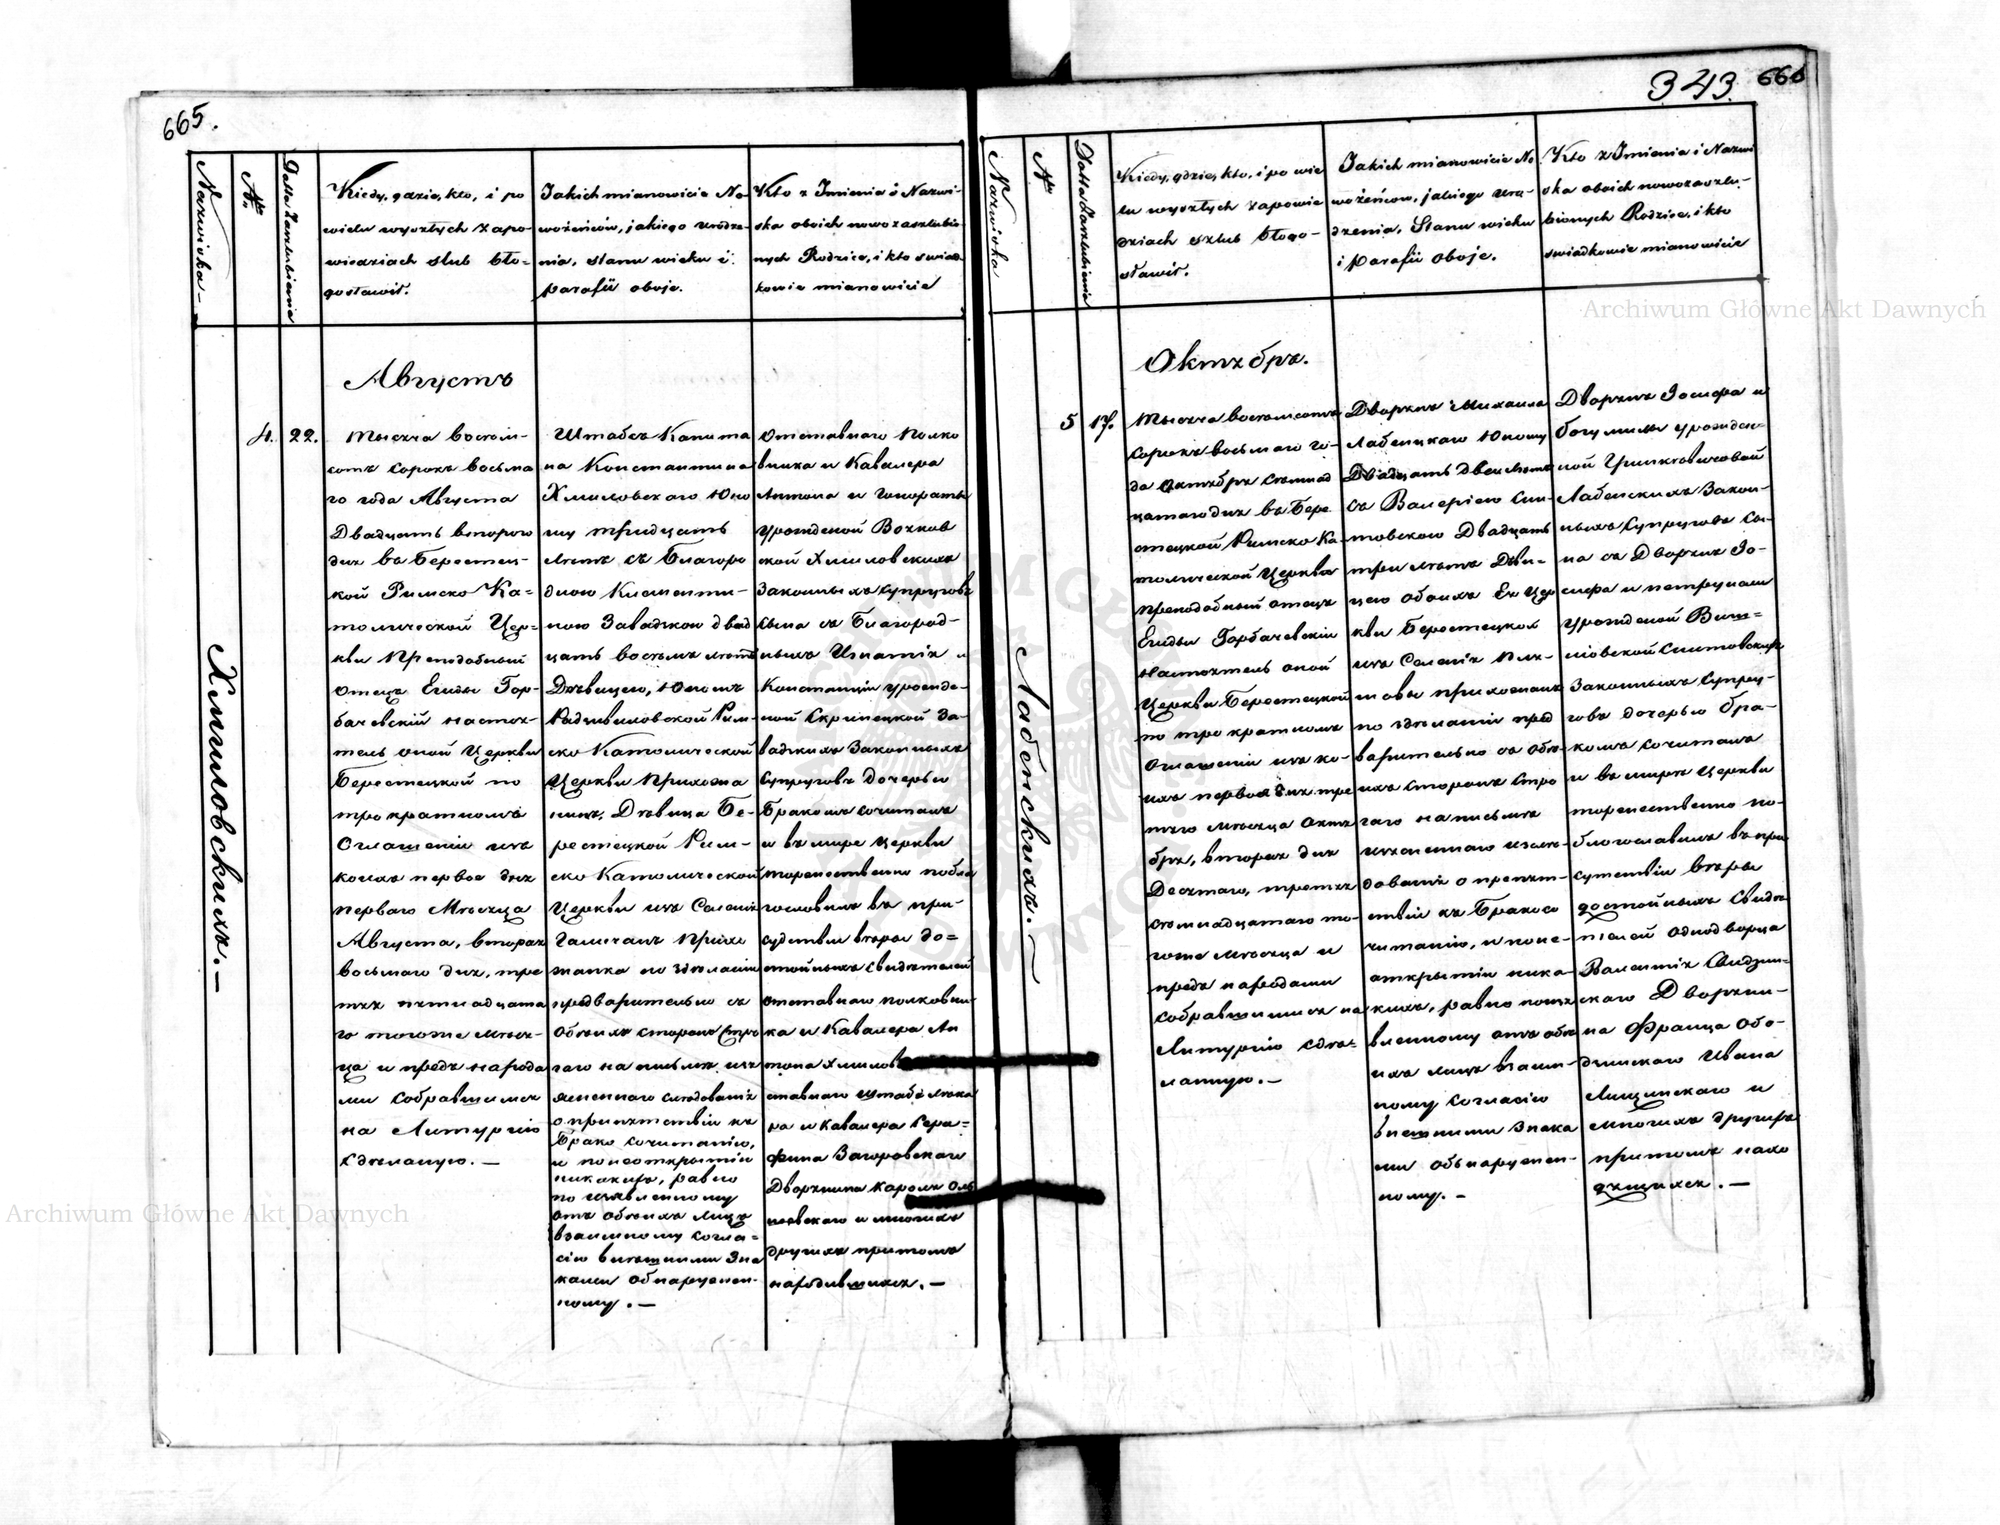 665.
Nazwiska
№
Data Zaszlubienia
Kiedy, gdzie, kto, i po
wielu wyszłych zapo-
wiedziach slub bło-
gosławił.
Jakich mianowicie No-
wożeńców, jakiego urodze-
nia, stanu wieku i
parafii oboje.
Kto z Imienia i Nazwi-
ska oboich nowozaszlubio-
nych Rodzice, i kto swiad-
kowie mianowicie
Хмиловскихъ.
4.
22.
Августъ
Тысяча восем-
сотъ сорокъ восьма
го года Августа
Двадцать второго
дня въ Берестец-
кой Римско Ка-
толической Цер-
кви Преподобный
Отецъ Егидъ Гор-
бачевскій настоя-
тель оной Церкви
Берестецкой по
трократномъ
Оглашеніи изъ
коихъ первое дня
перваго Месяца
Августа, вторая
восьмаго дня, тре
тяя пятнадцата
го тогоже меся-
ца и предъ народа
ми собравшимся
на Литургію
сдѣланую. —
Штабсъ Капита
на Константина
Хмиловскаго Юно
шу тридцать
летъ съ Благоро
дною Клементи-
ною Завадзкою двад
цать восемъ летъ
Девицею, Юноша
Радзивиловской Рим-
ско Католической
Церкви прихожа
нинъ, Девица Бе-
рестецкой Рим-
ско Католической
Церкви изъ Селенія
прихо
жанка по зделаніи
предварительно съ
обоихъ сторонъ стро
гаго на письме изъ
ясненнаго следованія
о препятствіи къ
Брако сочитанію,
и понеоткрытіи
никакихъ, равно
по изявленному
отъ обоихъ лицъ
взаимному согла-
сію внешними зна
ками обнаружен-
ному. —
Отставнаго Полко
вника и Кавалера
Антона и Гонораты
урожденой Вочков
ской Хмиловскихъ
Законныхъ супруговъ
сына съ Благород-
ныхъ Игнатія и
Констанціи урожде-
ной Скринецкой За-
вадзкихъ Законныхъ
супруговъ дочерью
Бракомъ сочиталъ
и въ лице Церкви
торжественно побла
гословилъ въ при-
судствіи веры до-
стойныхъ свидетелей
отставнаго полковни-
ка и Кавалера Ан
тона Хмилов
ставнаго штабъ лека
ра и Кавалера Сера-
фина Загоровскаго
Дворянина Кароля
и многихъ
другихъ притомъ
находившихся. —
343. 666
Nazwiska
№
Data Zaszlubienia
Kiedy, gdzie, kto, i po wie
lu wyszłych zapowie
dziach szlub błogo-
sławił.
Jakich mianowicie No
wożeńców, jakiego uro-
dzenia, Stanu wieku
i parafii oboje.
Kto z Imienia i Nazwi
ska oboich nowozaszlu-
bionych Rodzice, i kto
swiadkowie mianowicie
Лабенскихъ.
5
17.
Октябрь.
Тысяча восемсотъ
сорокъ восьмаго го-
да Октября семнад
цатаго дня въ Бере
стецкой Римско Ка-
толической Церкви
преподобный отецъ
Егидъ Горбачевскій
Настоятель оной
Церкви Берестецкой
по трократномъ
Оглашеніи изъ ко-
ихъ первое дня тре
тяго месяца Октя
бря, вторая дня
Десятаго, третяя
семнадцатаго то-
гоже месяца и
предъ народами
собравшимися на
Литургію сдѣ-
ланную. —
Дворянъ Михаила
Лабенцкаго Юношу
Двадцать двеи летъ
съ Валеріею Сни-
товскою Двадцать
три летъ Деви-
цею обоихъ Ея Цер
кви Берестецкой
изъ Селенія Пля-
шовы прихожанъ
по зделаніи пред
варительно съ обо-
ихъ сторонъ стро
гаго на письме
изъясненаго изсле-
дованія о препят-
ствіи къ Бракосо
читанію, и поне-
аткрытіи ника-
кихъ, равно поизя
вленному отъ обо
ихъ лицъ взаим-
ному согласію
внешними знака
ми обнаружен-
ному. —
Дворянъ Іосифа и
Богумилы урожден-
ной Гриневичовой
Лабенскихъ Закон-
ныхъ супруговъ сы-
на съ Дворянъ Іо-
сифа и петрунели
урожденой Виш-
ніовской Снитовскихъ
Законныхъ супру-
говъ дочерью бра-
комъ сочиталъ
и въ лице Церкви
торжественно по-
благославилъ въ при
сутствіи веры
достойныхъ свиде
телей однодворца
Валентія Свидзин-
скаго Дворяни-
на Франца Обо-
длинскаго Ивана
Лищинскаго и
многихъ другихъ
притомъ нахо
дящихся. —
Archiwum Główne Akt Dawnych
Archiwum Główne Akt Dawnych